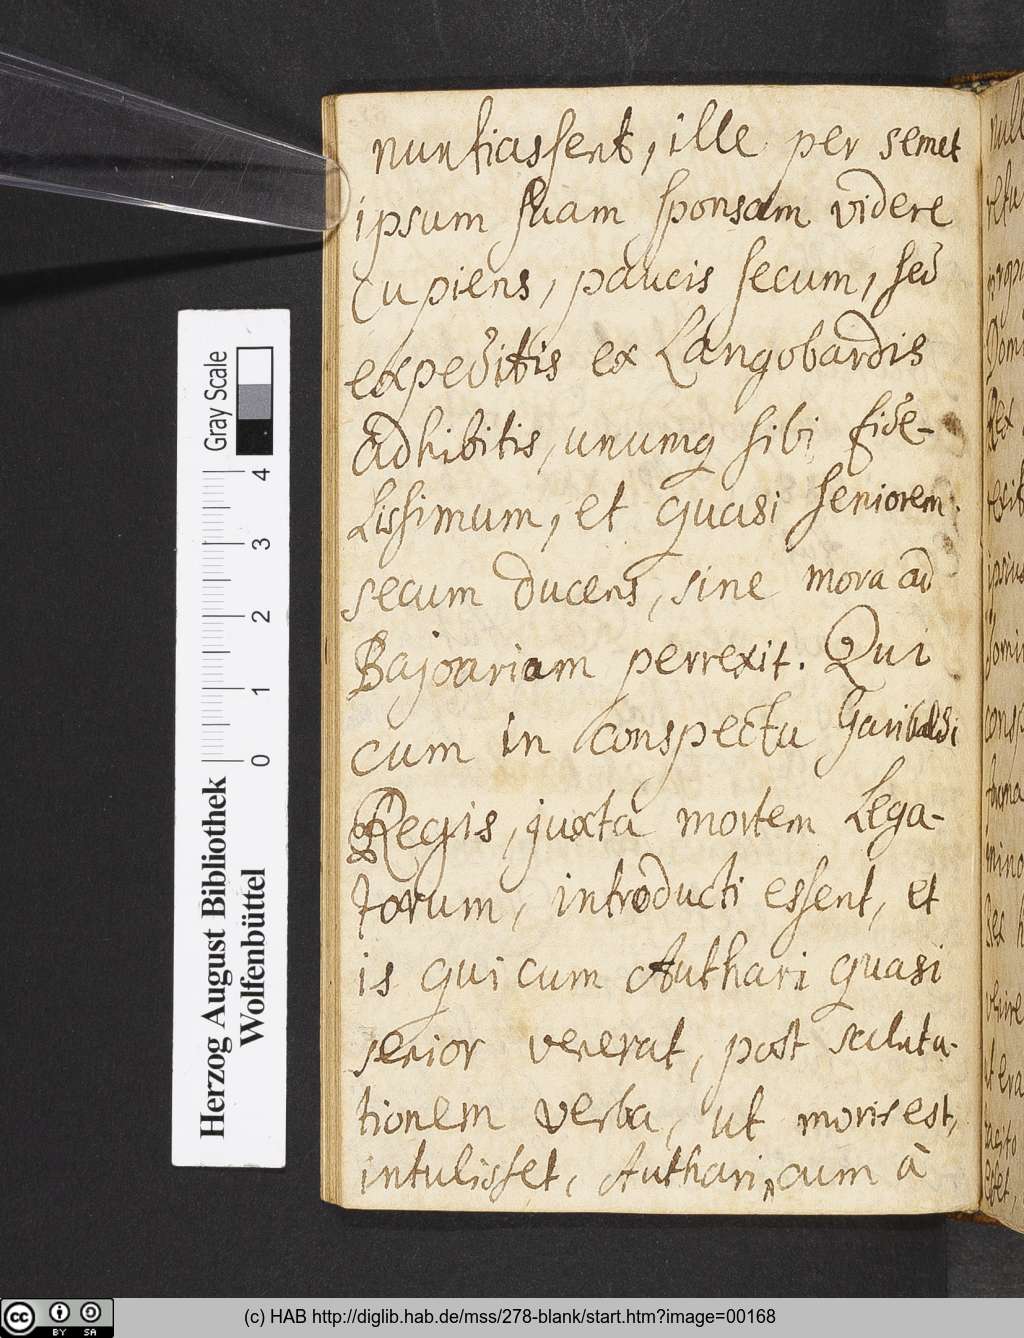 nuntiassent, ille per semet
ipsum suam sponsam videre
Cupiens, paucis secum, sed
expeditis ex Langobardis
adhibitis, unumq sibi fide-
Lissimum, et quasi seniorem
secum ducens, sine mora ad
Bajoariam perrexit. Qui
cum in conspectu Garibaldi
Regis, juxta mortem Lega-
torum, introducti essent, et
is qui cum Authari quasi
senior venerat, post saluta-
tionem verba, ut moris est,
intulisset, Authari, cum à
Gray Scale
0 1 2 3 4
Herzog August Bibliothek
Wolfenbüttel
cc BY SA
(c) HAB http://diglib.hab.de/mss/278-blank/start.htm?image=00168